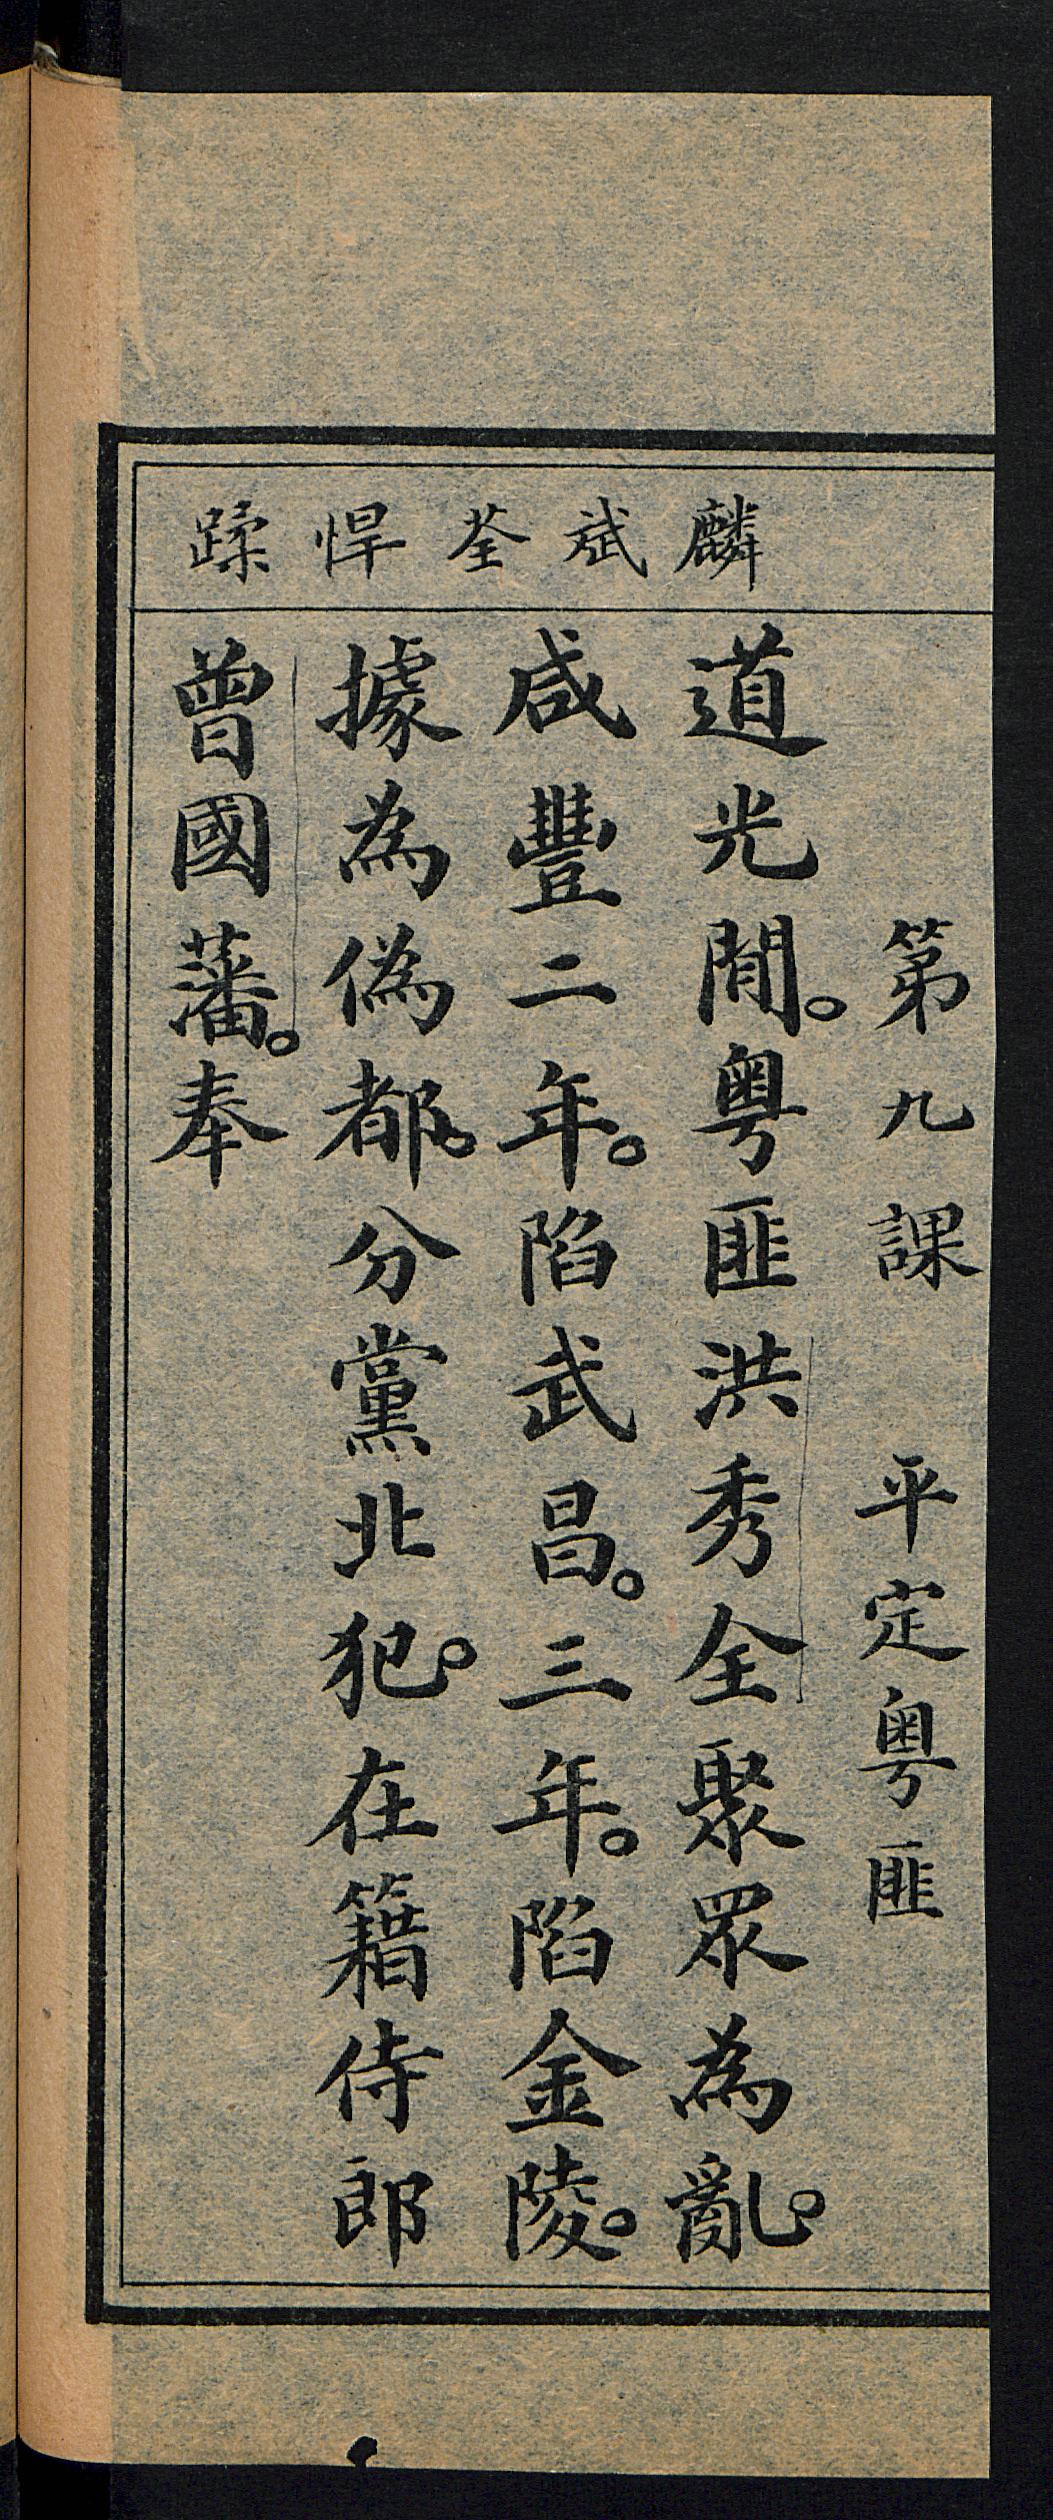 麟斌荃悍蹂
第九課　平定粤匪
道光閒。粤匪洪秀全聚眾為亂。
咸豐二年。陷武昌。三年。陷金陵。
據為偽都。分黨北犯。在籍侍郎
曾國藩。奉